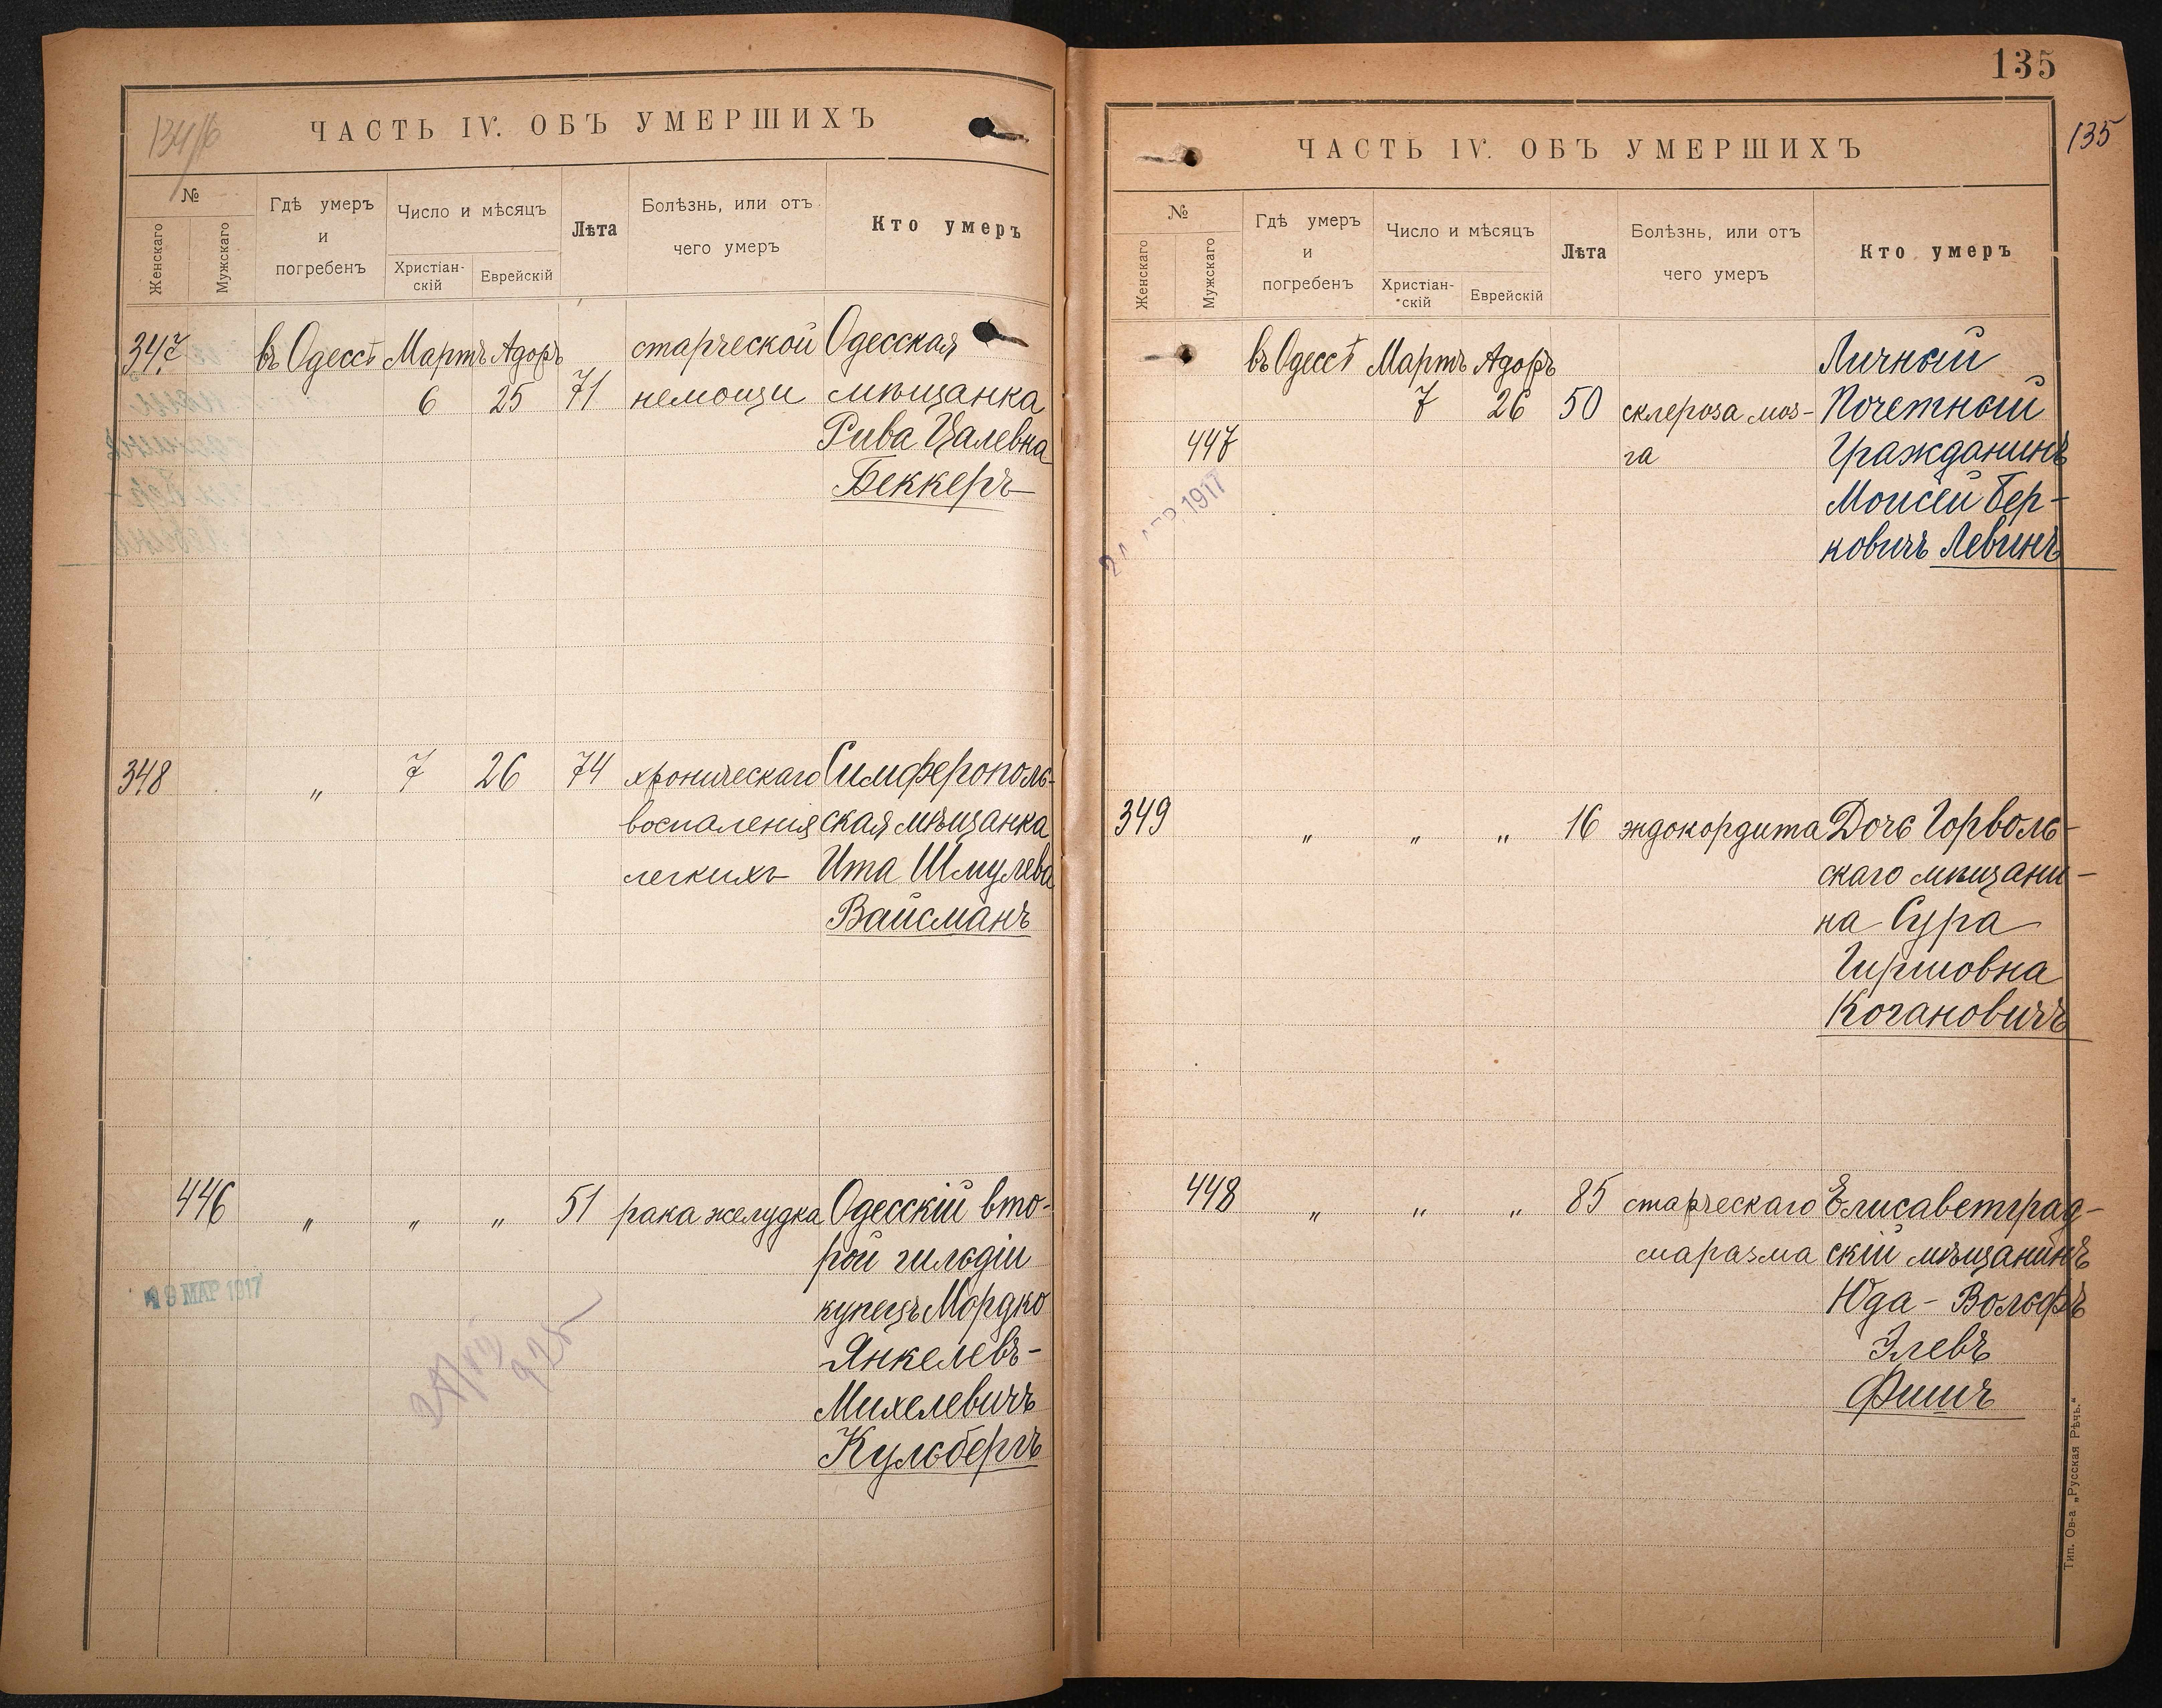 134/б
ЧАСТЬ IV. ОБЪ УМЕРШИХЪ
№
Женскаго
Мужскаго
Гдѣ умеръ
и
погребенъ
Число и мѣсяцъ
Христіан-
скій
Еврейскій
Лѣта
Болѣзнь, или отъ
чего умеръ
Кто умеръ
347 въ Одессѣ Мартъ Адоръ старческой Одесская
6 25 71 немощи мѣщанка
Рива Цалевна
Беккеръ
348 " 7 26 74 хроническаго Симферополь-
воспаленія ская мѣщанка
легкихъ Ита Шмулева
Вайсманъ
446 " " " 51 рака желудка Одесскій вто-
рой гильдіи
купецъ Мордко
Янкелевъ-
Михелевичъ
Кульбергъ
МАР 1917
135
135
ЧАСТЬ IV. ОБЪ УМЕРШИХЪ
№
Женскаго
Мужскаго
Гдѣ умеръ
и
погребенъ
Число и мѣсяцъ
Христіан-
скій
Еврейскій
Лѣта
Болѣзнь, или отъ
чего умеръ
Кто умеръ
въ Одессѣ Мартъ Адоръ Личный
7 26 50 склероза моз- Почетный
447 га Гражданинъ
Моисей Бер-
ковичъ Левинъ
1917
349 " " " 16 эндокордита Дочь Горволь-
скаго мѣщани-
на Сура
Гиршовна
Когановичъ
448 " " " 85 старческаго Елисаветград-
маразма скій мѣщанинъ
Юда-Вольфъ
Элевъ
Фишъ
Тип. Ов-а „Русская Рѣчь."